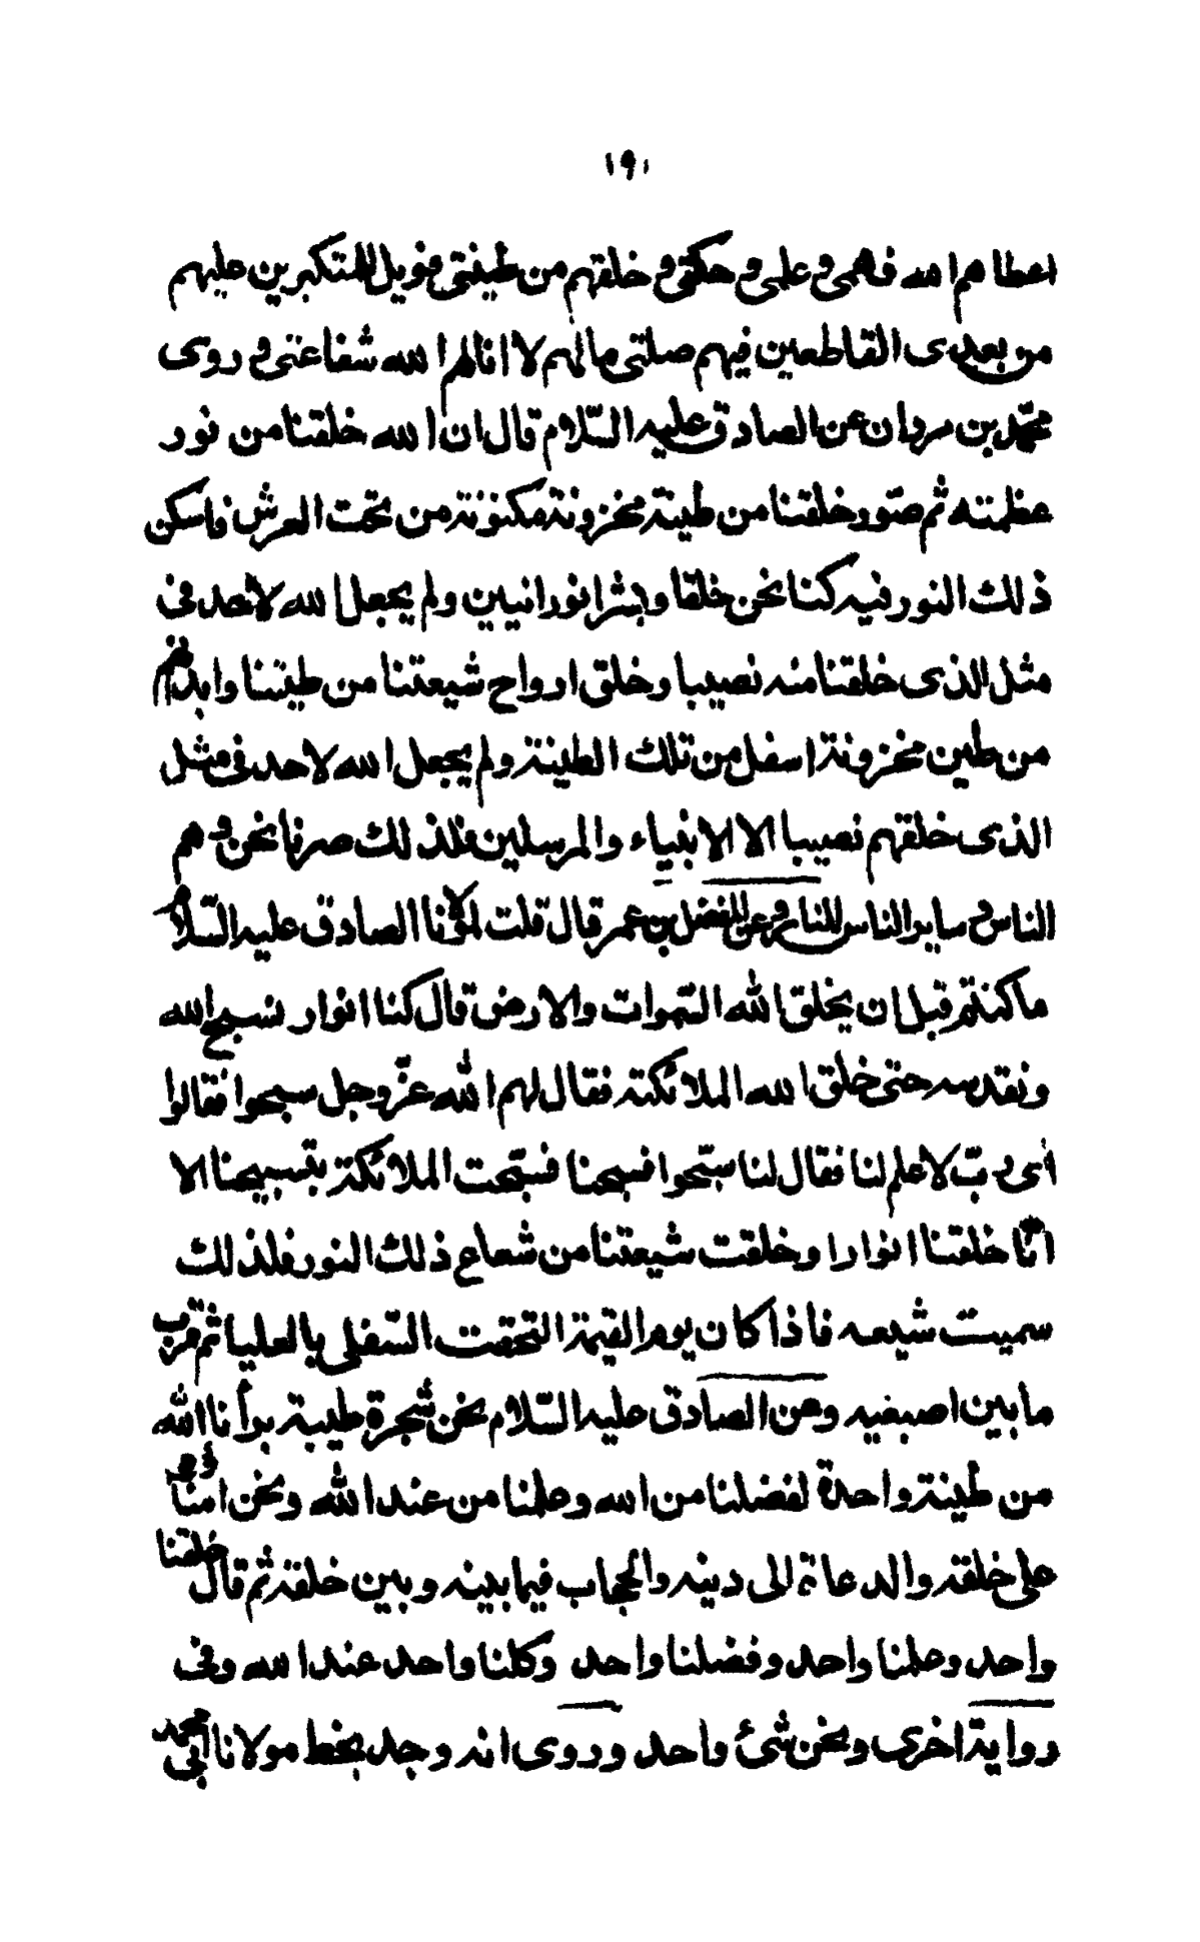 ١٩١
اعطاهم الله فهمى و علمى و حكمتى و خلقهم من طينتى فويل للمتكبرين عليهم
من بعدى القاطعين فيهم صلتى مالهم لا انالهم الله شفاعتى و روى
محمّد بن مروان عن الصادق عليه السّلام قال ان الله خلقنا من نور
عظمته ثم صوّر خلقنا من طينة مخزونة مكنونة من تحت العرش فاسكن
ذلك النور فيه كنا نحن خلقا و بشرا نورانيين ولم يجعل الله لاحد فى
مثل الذى خلقنا منه نصيبا و خلق ارواح شيعتنا من طينتنا وابدانهم
من طين مخزونة اسفل من تلك الطينة ولم يجعل الله لاحد فى مثل
الذى خلقهم نصيبا الا الانبياء والمرسلين فلذلك صرنا نحن و هم
الناس و ساير الناس للنار و عن المفضل بن عمر قال قلت لمولانا الصادق عليه السّلام
ما كنتم قبل ان يخلق الله السّموات والارض قال كنا انوار نسبح الله
و نقدسه حتى خلق الله الملائكة فقال لهم الله عزّ وجل سبحوا فقالوا
أى ربّ لا علم لنا فقال لنا سبّحوا فسبحنا فسبّحت الملائكة بتسبيحنا الا
انّا خلقنا انوارا و خلقت شيعتنا من شعاع ذلك النور فلذلك
سميت شيعه فاذا كان يوم القيمة التحقت السّفلى بالعليا ثم قرب
ما بين اصبعيه وعن الصادق عليه السّلام نحن شجرة طيبة برأنا الله
من طينة واحدة لفضلنا من الله وعلمنا من عند الله ونحن امناؤه
على خلقه والدعاة الى دينه والحجاب فيما بينه و بين خلقه ثم قال خلقنا
واحد وعلمنا واحد وفضلنا واحد وكلنا واحد عند الله وفى
رواية اخرى ونحن شئ واحد وروى انه وجد بخط مولانا ابى محمد